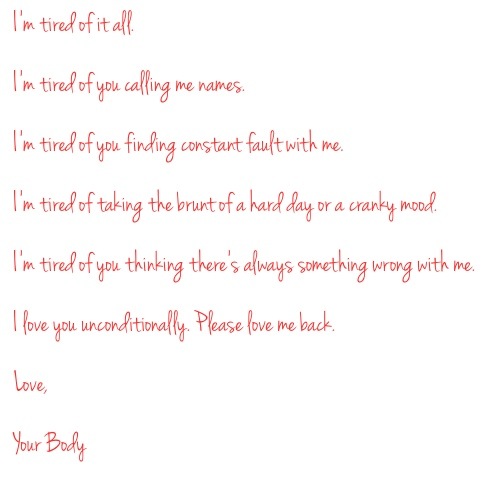 I'm tired of it all.
I'm tired of you calling me names.
I'm tired of you finding constant fault with me.
I'm tired of taking the brunt of a hard day or a cranky mood.
I'm tired of you thinking there's always something wrong with me.
I love you unconditionally. Please love me back.
Love,
Your Body